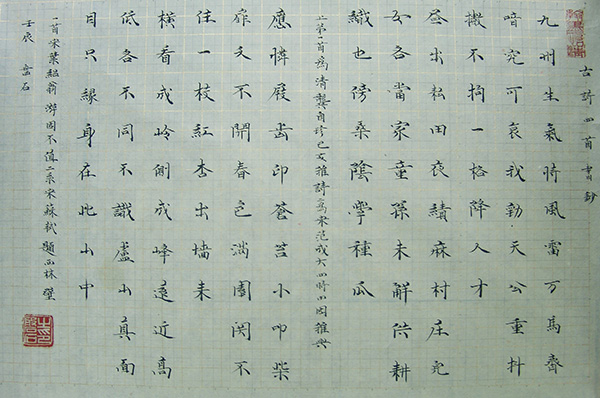 古詩四首書鈔
九州生氣恃風雷万馬齊
喑究可哀我勸天公重抖
擻不拘一格降人才
昼出耘田夜績麻村庄兒
女各當家童孫未解供耕
織也傍桑蔭學種瓜
上第一首爲清龔自珍己亥雜詩爲宋范成大四時田園雜興
應憐屐齒印蒼苔小叩柴
扉久不開春色滿園関不
住一枝紅杏出墙来
橫看成岭側成峰遠近髙
低各不同不識廬山真面
目只緣身在此山中
一首宋葉紹翁游園不值二宋蘇軾題西林壁
壬辰 石